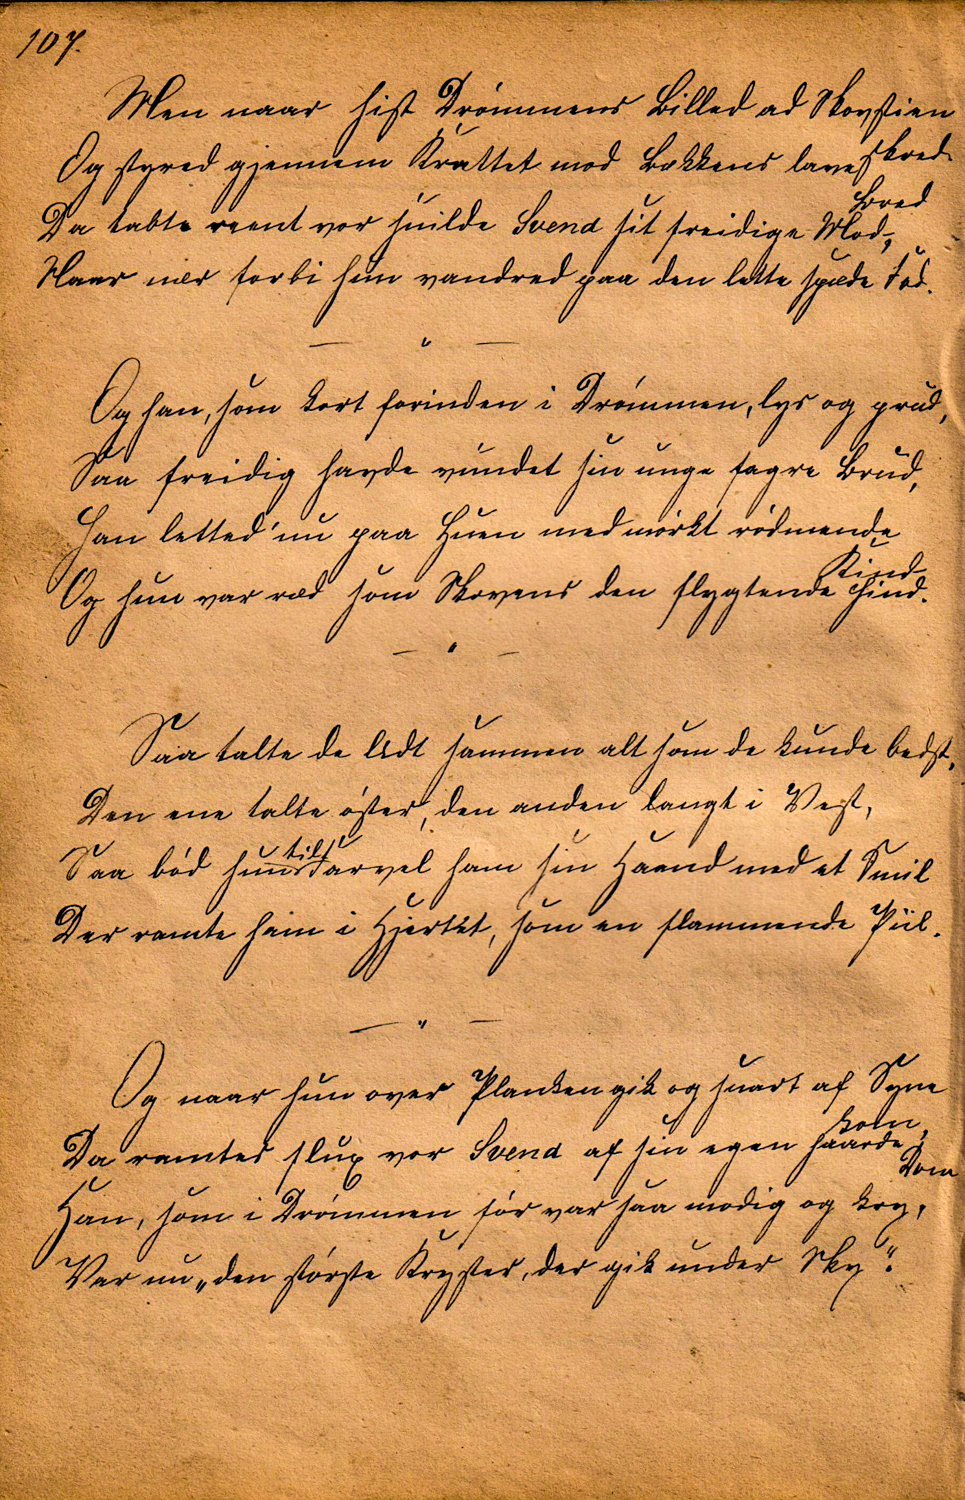 107.
Men naar hist Drømmens Billed ad Skovstien skred
Og styred gjennem Krattet mod Bækkens lave Bred
Da tabte reent vor snilde Svend sit freidige Mod,
Naar nær forbi hun vandred paa den lette spæde Fod.
— " —
Og han, som kort forinden i Drømmen, lys og prud,
Saa freidig havde vundet sin unge fagre Brud,
Han letted' nu paa Huen med mørkt rødmende Kind
Og hun var ræd som Skovens den flygtende Hind.
— " —
Saa talte de lidt sammen alt som de kunde bedst,
Den ene talte øster, den anden langt i Vest,
Saa bød hun til Farvel ham sin Haand med et Smil
Der ramte ham i Hjertet, som en flammende Piil.
— " —
Og naar hun over Planken gik og snart af Syne kom,
Da ramtes slux vor Svend af sin egen haarde Dom
Han, som i Drømmen før var saa modig og kry,
Var nu „den største Kryster, der gik under Sky“.